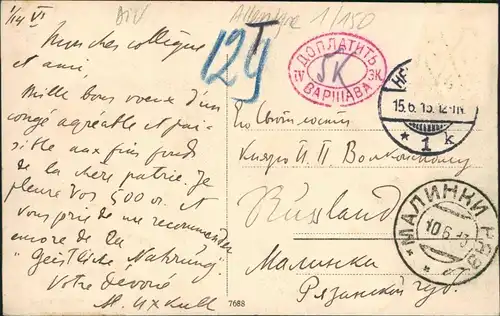 1/14 VI
Mon cher collègue
et ami,
Mille bons voeux d'un
congé agréable et pai-
sible aux fins fonds
de la chère patrie. Je
pleure vos 500 r. et
vous prie de me recommander
encore de la
"Geistliche Nahrung".
Votre dévoué
M. Uxkull
1/150
12
ДОПЛАТИТЬ
5К
ЭК.
ВАРШАВА
15.6.13. 12-1N.
* 1 k
Его Сиятельству
Князю П. П. Волконскому
Russland
Малинки
Рязанской губ.
МАЛИНКИ РЯЗ.
10.6.13
7688